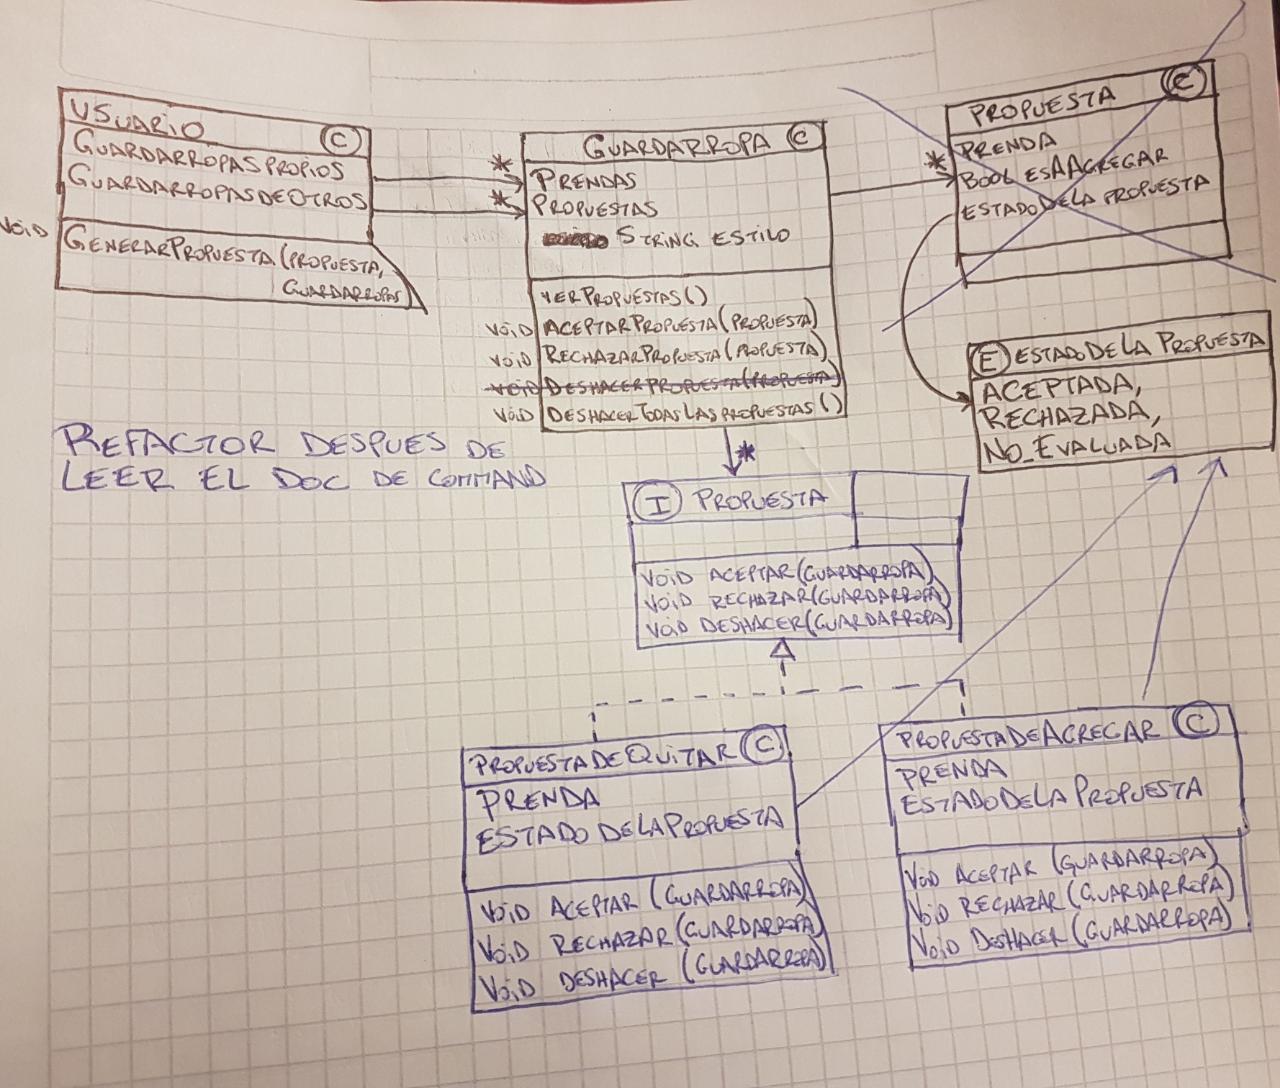 USUARIO C
GUARDARROPASPROPIOS
GUARDARROPASDEOTROS
VOID GENERARPROPUESTA(PROPUESTA,
GUARDARROPAS)
*
*
GUARDARROPA C
PRENDAS
PROPUESTAS
STRING ESTILO
VERPROPUESTAS()
VOID ACEPTARPROPUESTA(PROPUESTA)
VOID RECHAZARPROPUESTA(PROPUESTA)
VOID DESHACERPROPUESTA(PROPUESTA)
VOID DESHACERTODASLASPROPUESTAS()
*
PROPUESTA C
PRENDA
BOOL ESAAGREGAR
ESTADODELA PROPUESTA
E ESTADODELA PROPUESTA
ACEPTADA,
RECHAZADA,
NO_EVALUADA
REFACTOR DESPUES DE
LEER EL DOC DE COMMAND
*
I PROPUESTA
VOID ACEPTAR(GUARDARROPA)
VOID RECHAZAR(GUARDARROPA)
VOID DESHACER(GUARDARROPA)
PROPUESTADEQUITAR C
PRENDA
ESTADO DELAPROPUESTA
VOID ACEPTAR (GUARDARROPA)
VOID RECHAZAR (GUARDARROPA)
VOID DESHACER (GUARDARROPA)
PROPUESTADEAGREGAR C
PRENDA
ESTADODELA PROPUESTA
VOID ACEPTAR (GUARDARROPA)
VOID RECHAZAR (GUARDARROPA)
VOID DESHACER (GUARDARROPA)